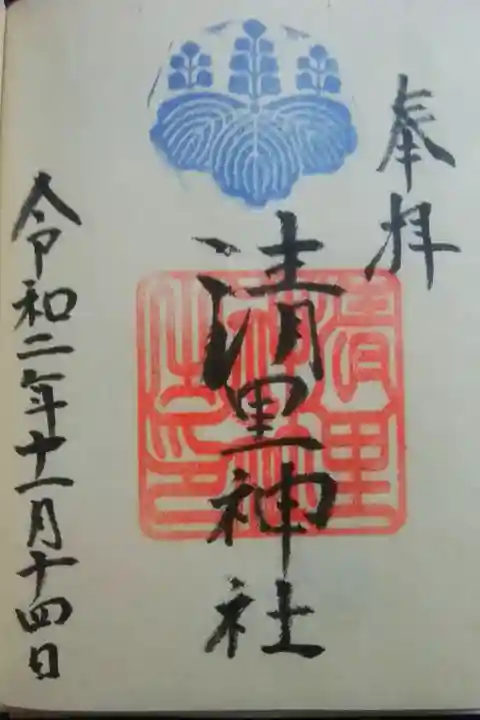 奉拝
清里神社
清里神社之印
令和二年十一月十四日